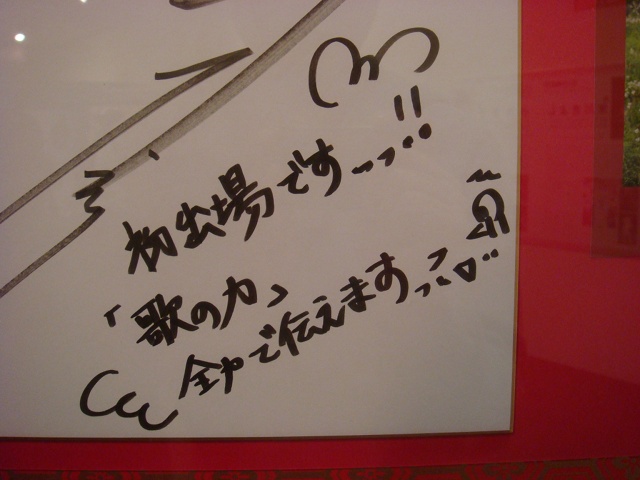 初出場ですーっ!!
「歌の力」
全力で伝えますっ